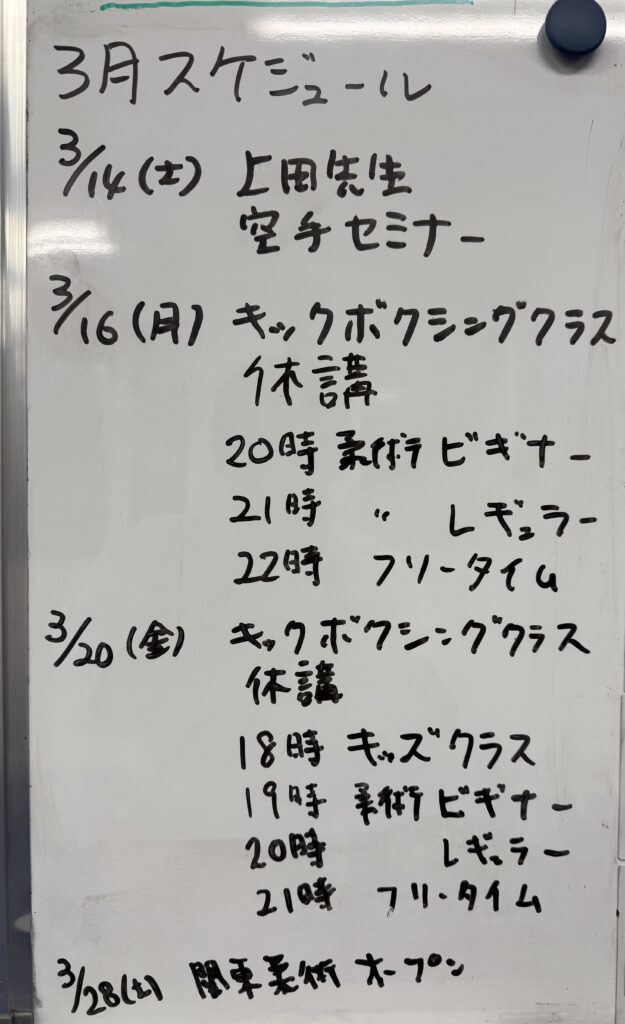 3月スケジュール
3/14(土) 上田先生
空手セミナー
3/16(月) キックボクシングクラス
休講
20時 柔術ビギナー
21時 〃 レギュラー
22時 フリータイム
3/20(金) キックボクシングクラス
休講
18時 キッズクラス
19時 柔術ビギナー
20時 レギュラー
21時 フリータイム
3/28(土) 関東柔術オープン